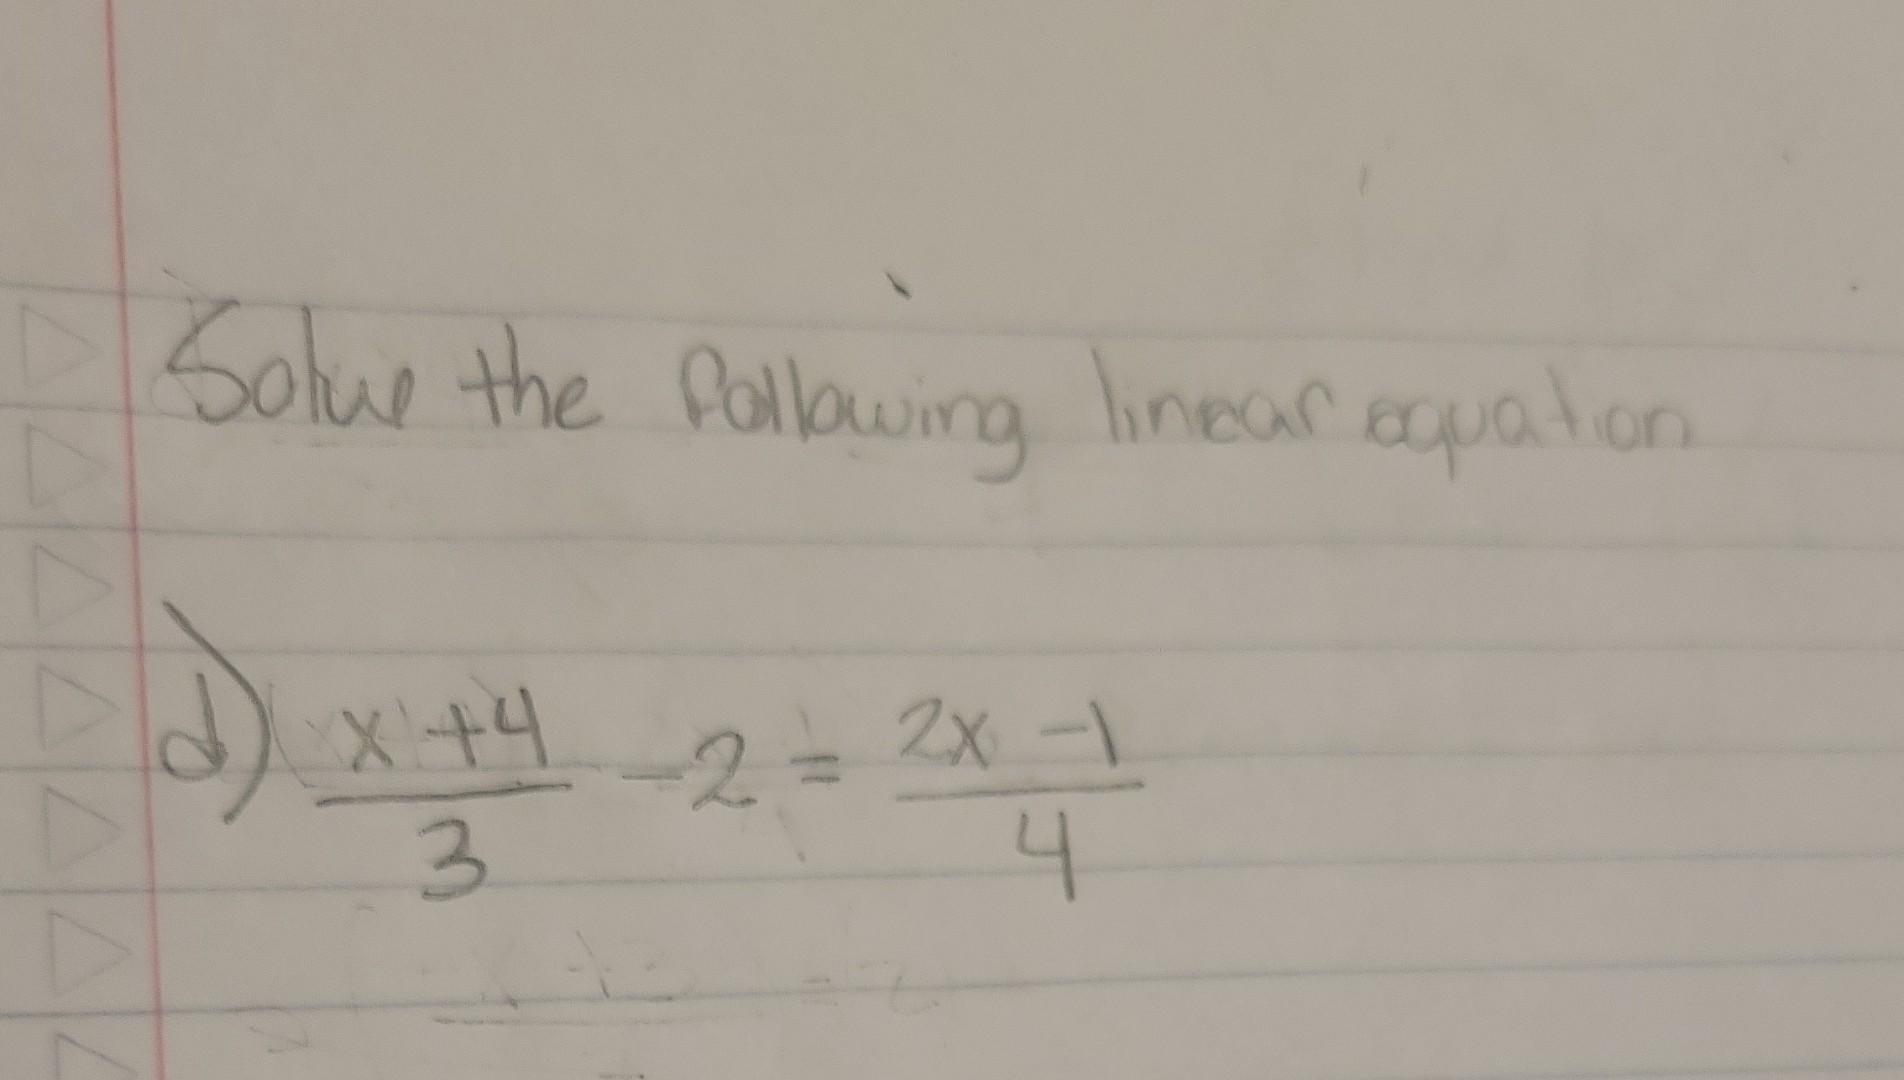 Solve the following linear equation
d) x+4/3 -2 = 2x-1/4